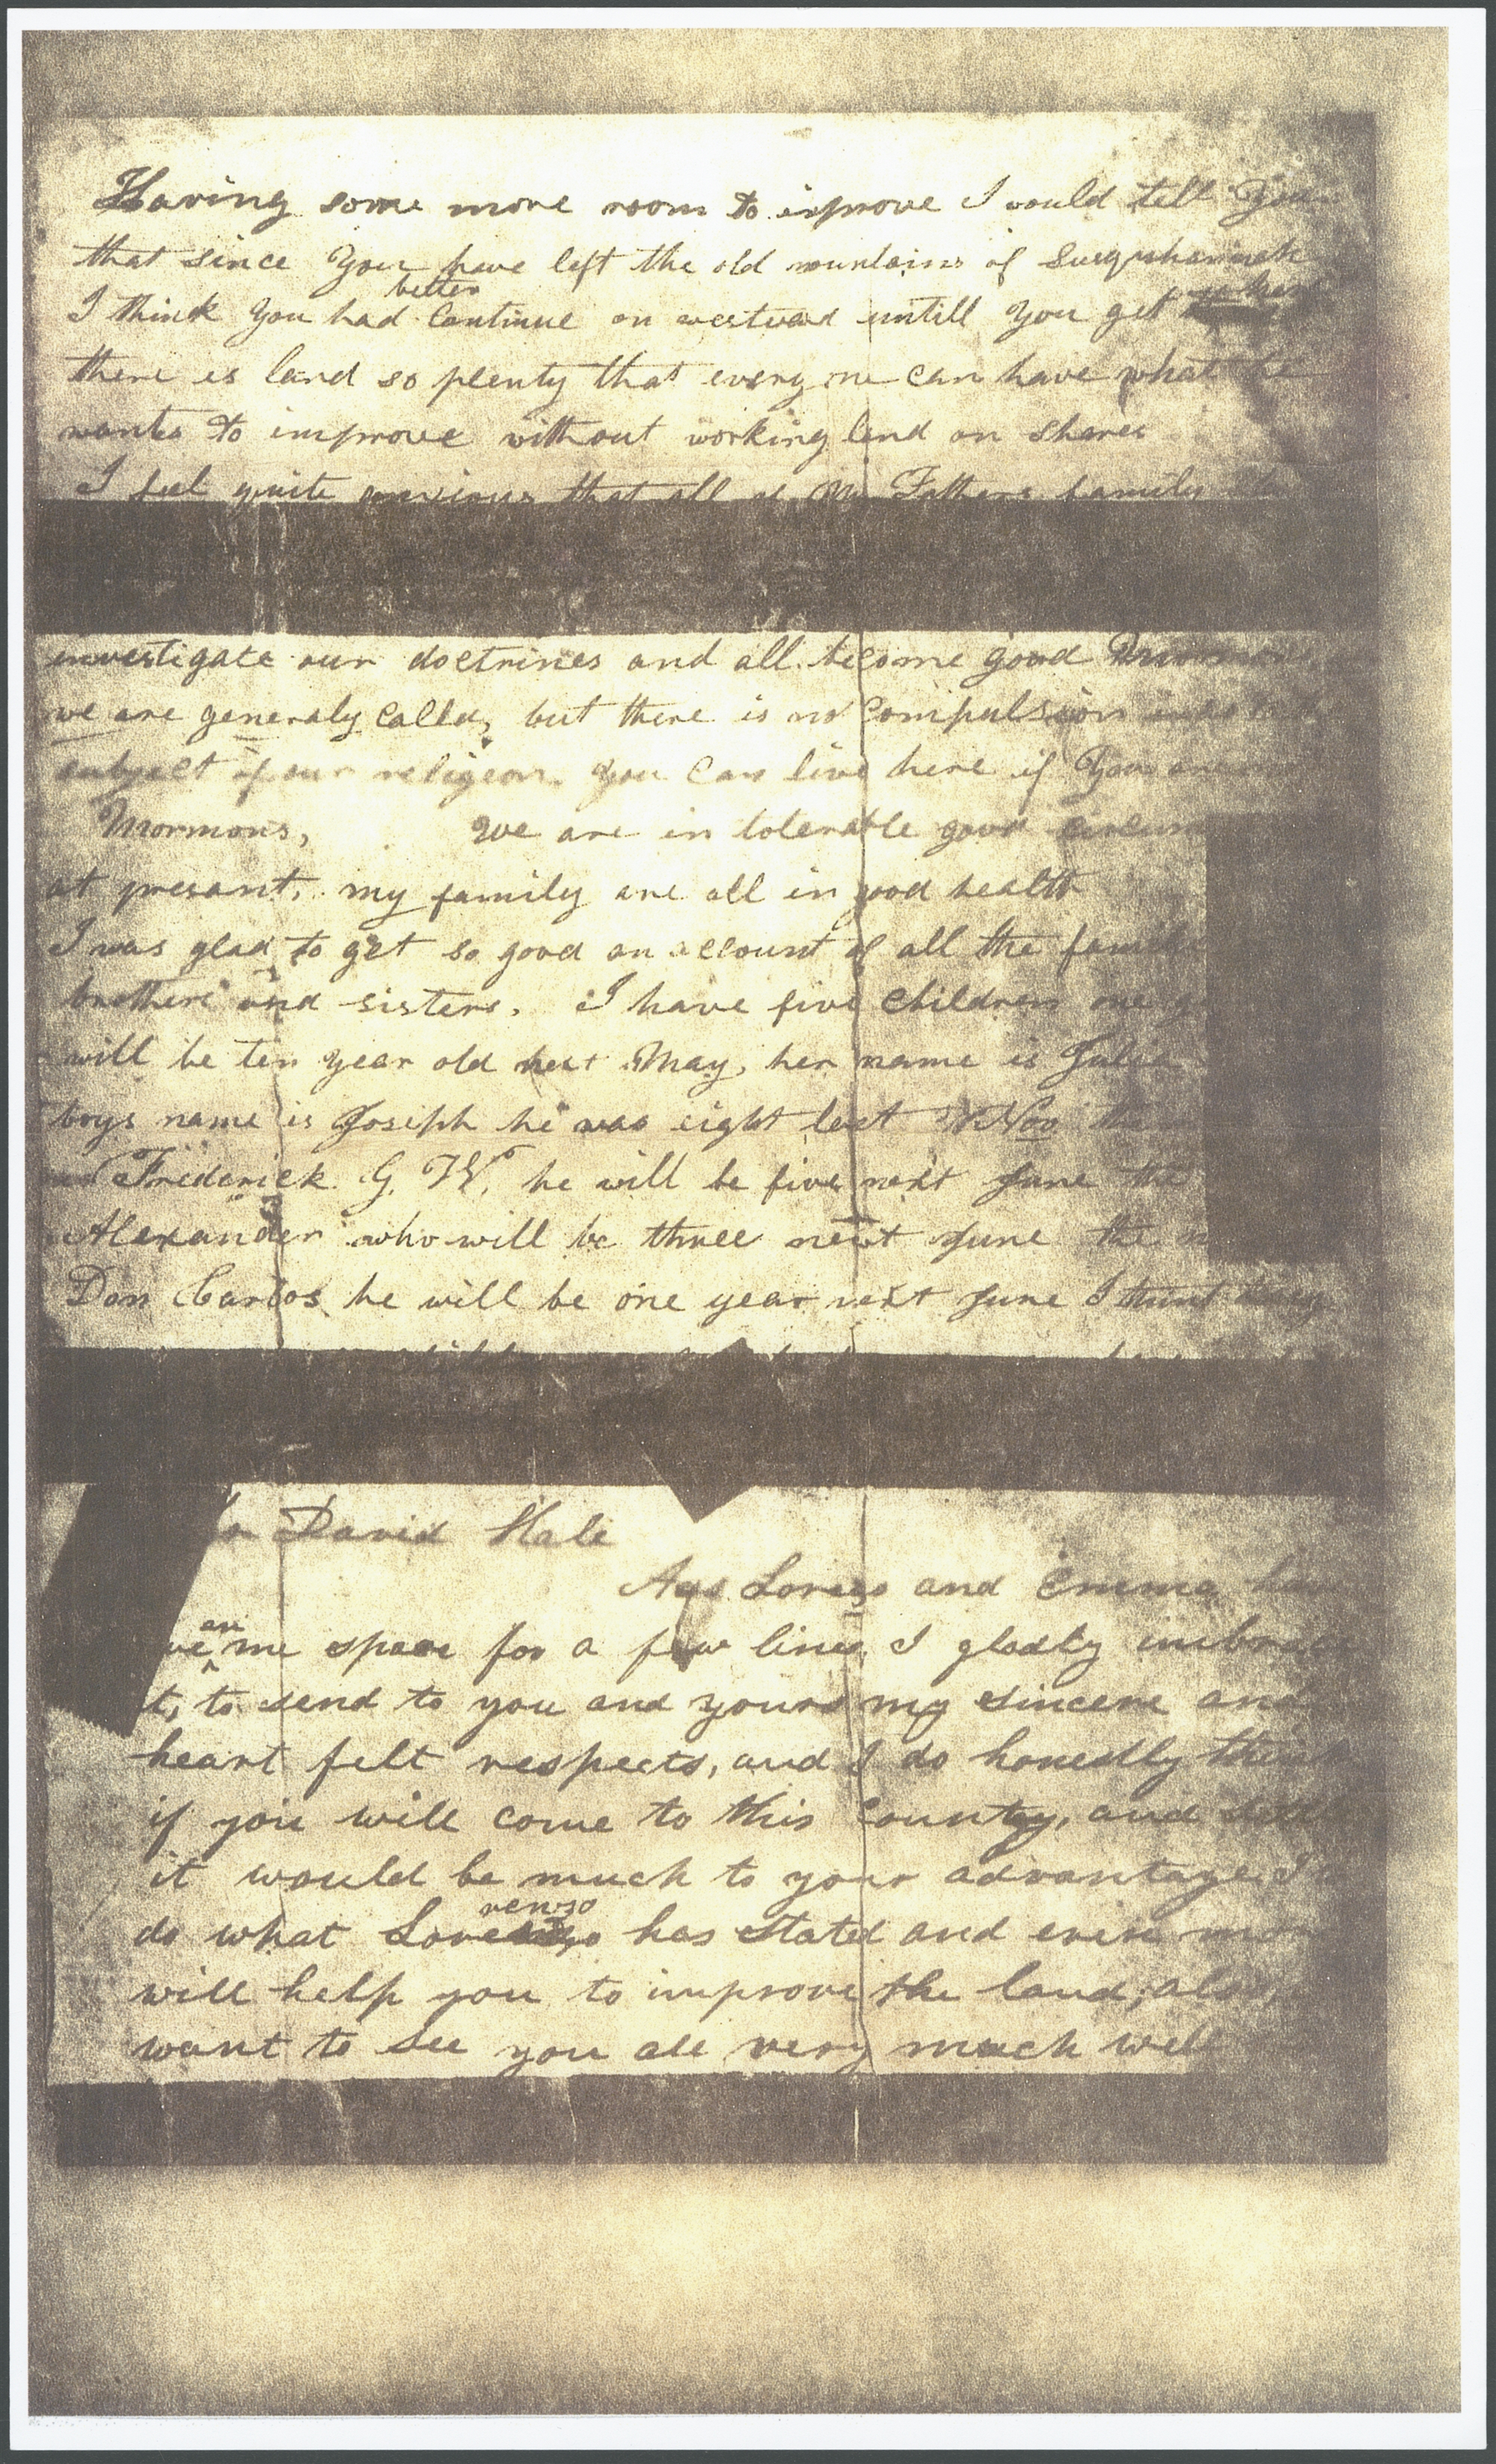 Having some more room to improve I would tell You
that since You have left the old mountains of Susquhannah
better
I think You had Continue on westward untill You get where
there is land so plenty that every one can have what he
wants to improve without working land on shares
I feel quite anxious that all of My Fathers family
investigate our doctrines and all become good Mormons
we are generaly Called, but there is no Compulsion
subject of our religeon. You Can live here if You are
Mormons, We are in tolerable good circum
at presant, my family are all in good health
I was glad to get so good an account of all the famil
brothers and sisters. I have five Children one g
will be ten year old next May, her name is Julia
boys name is Joseph he was eight last Nov the
Frederick G. W. he will be five next June the
Alexander who will be three next June the
Don Carlos he will be one year next June I think they
David Hale
Ags Lorenzo and Emma have
an
me space for a few lines, I gladly imbrace
t, to send to you and yours my sincere and
heart felt respects, and I do honestly think
if you will come to this County, and settl
it would be much to your advantage I
renzo
do what has stated and even mor
will help you to improve the land, also,
want to see you all very much well